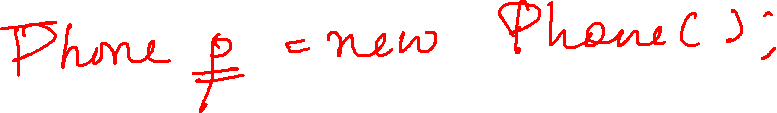 Phone p = new Phone();